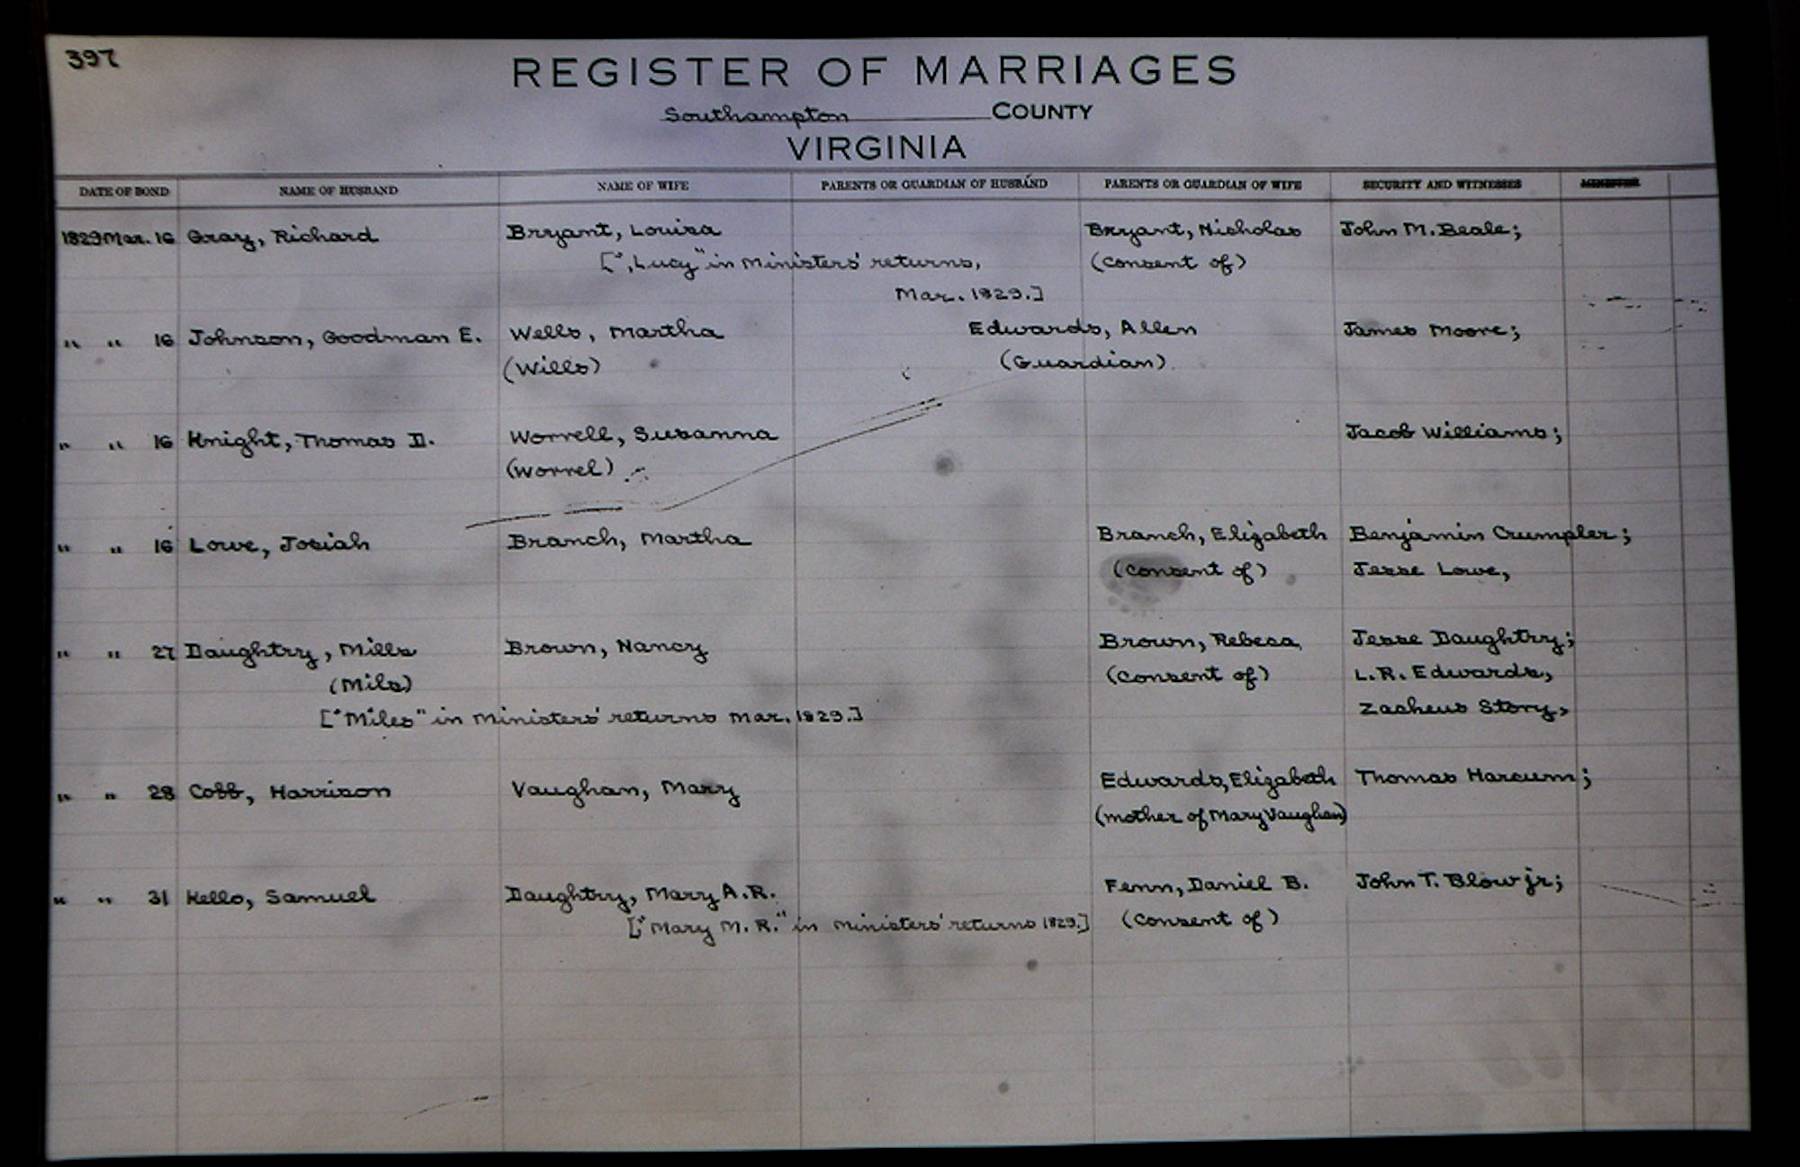 397
REGISTER OF MARRIAGES
Southampton COUNTY
VIRGINIA
DATE OF BOND NAME OF HUSBAND NAME OF WIFE PARENTS OR GUARDIAN OF HUSBAND PARENTS OR GUARDIAN OF WIFE SECURITY AND WITNESSES MINISTER
1829 Mar. 16 Gray, Richard Bryant, Louisa Bryant, Nicholas John M. Beale;
[", Lucy" in Ministers' returns, (consent of)
Mar. 1829.]
" " 16 Johnson, Goodman E. Wells, Martha Edwards, Allen James Moore;
(Wills) (Guardian)
" " 16 Knight, Thomas D. Worrell, Susanna Jacob Williams;
(Worrel)
" " 16 Lowe, Josiah Branch, Martha Branch, Elizabeth Benjamin Crumpler;
(consent of) Jesse Lowe,
" " 27 Daughtry, Mills Brown, Nancy Brown, Rebeca Jesse Daughtry;
(Mils) (consent of) L.R. Edwards,
["Miles" in Ministers' returns Mar. 1829.] Zacheus Story,
" " 28 Cobb, Harrison Vaughan, Mary Edwards, Elizabeth Thomas Harcum;
(mother of Mary Vaughan)
" " 31 Kello, Samuel Daughtry, Mary A.R. Fenn, Daniel B. John T. Blow jr;
["Mary M. R." in Ministers' returns 1829.] (consent of)